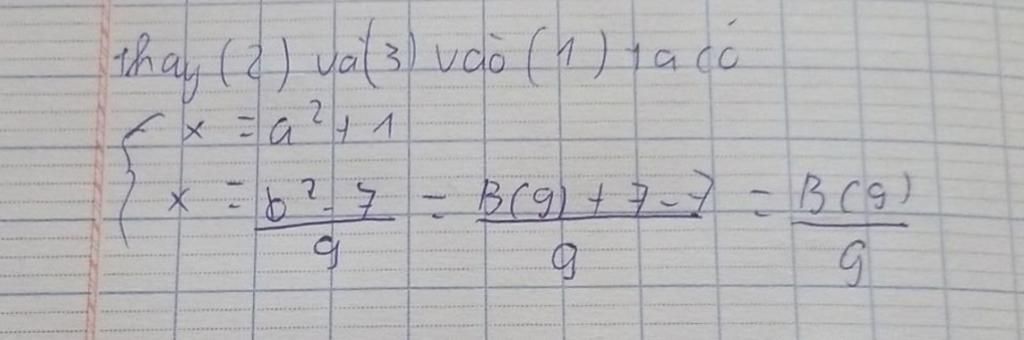 thay (2) và (3) vào (1) ta có
{ x = a² + 1
x = b² - 7 / 9 = B(9) + 7 - 7 / 9 = B(9) / 9